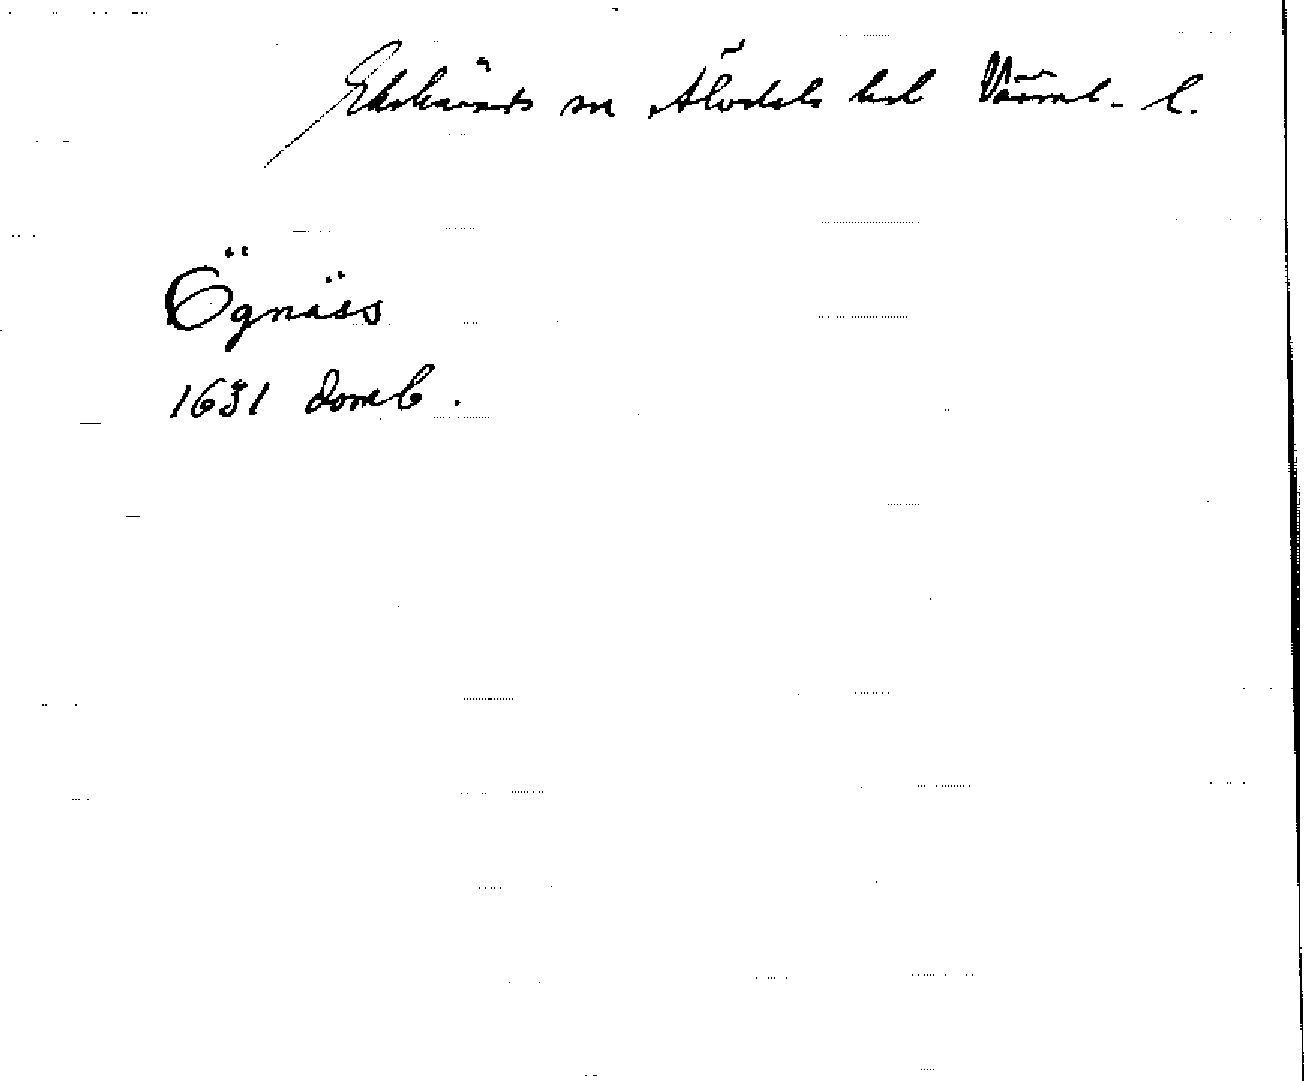 Ekshärads sn Älvdals hd Värml. l.
Ögnäss
1631 domb.